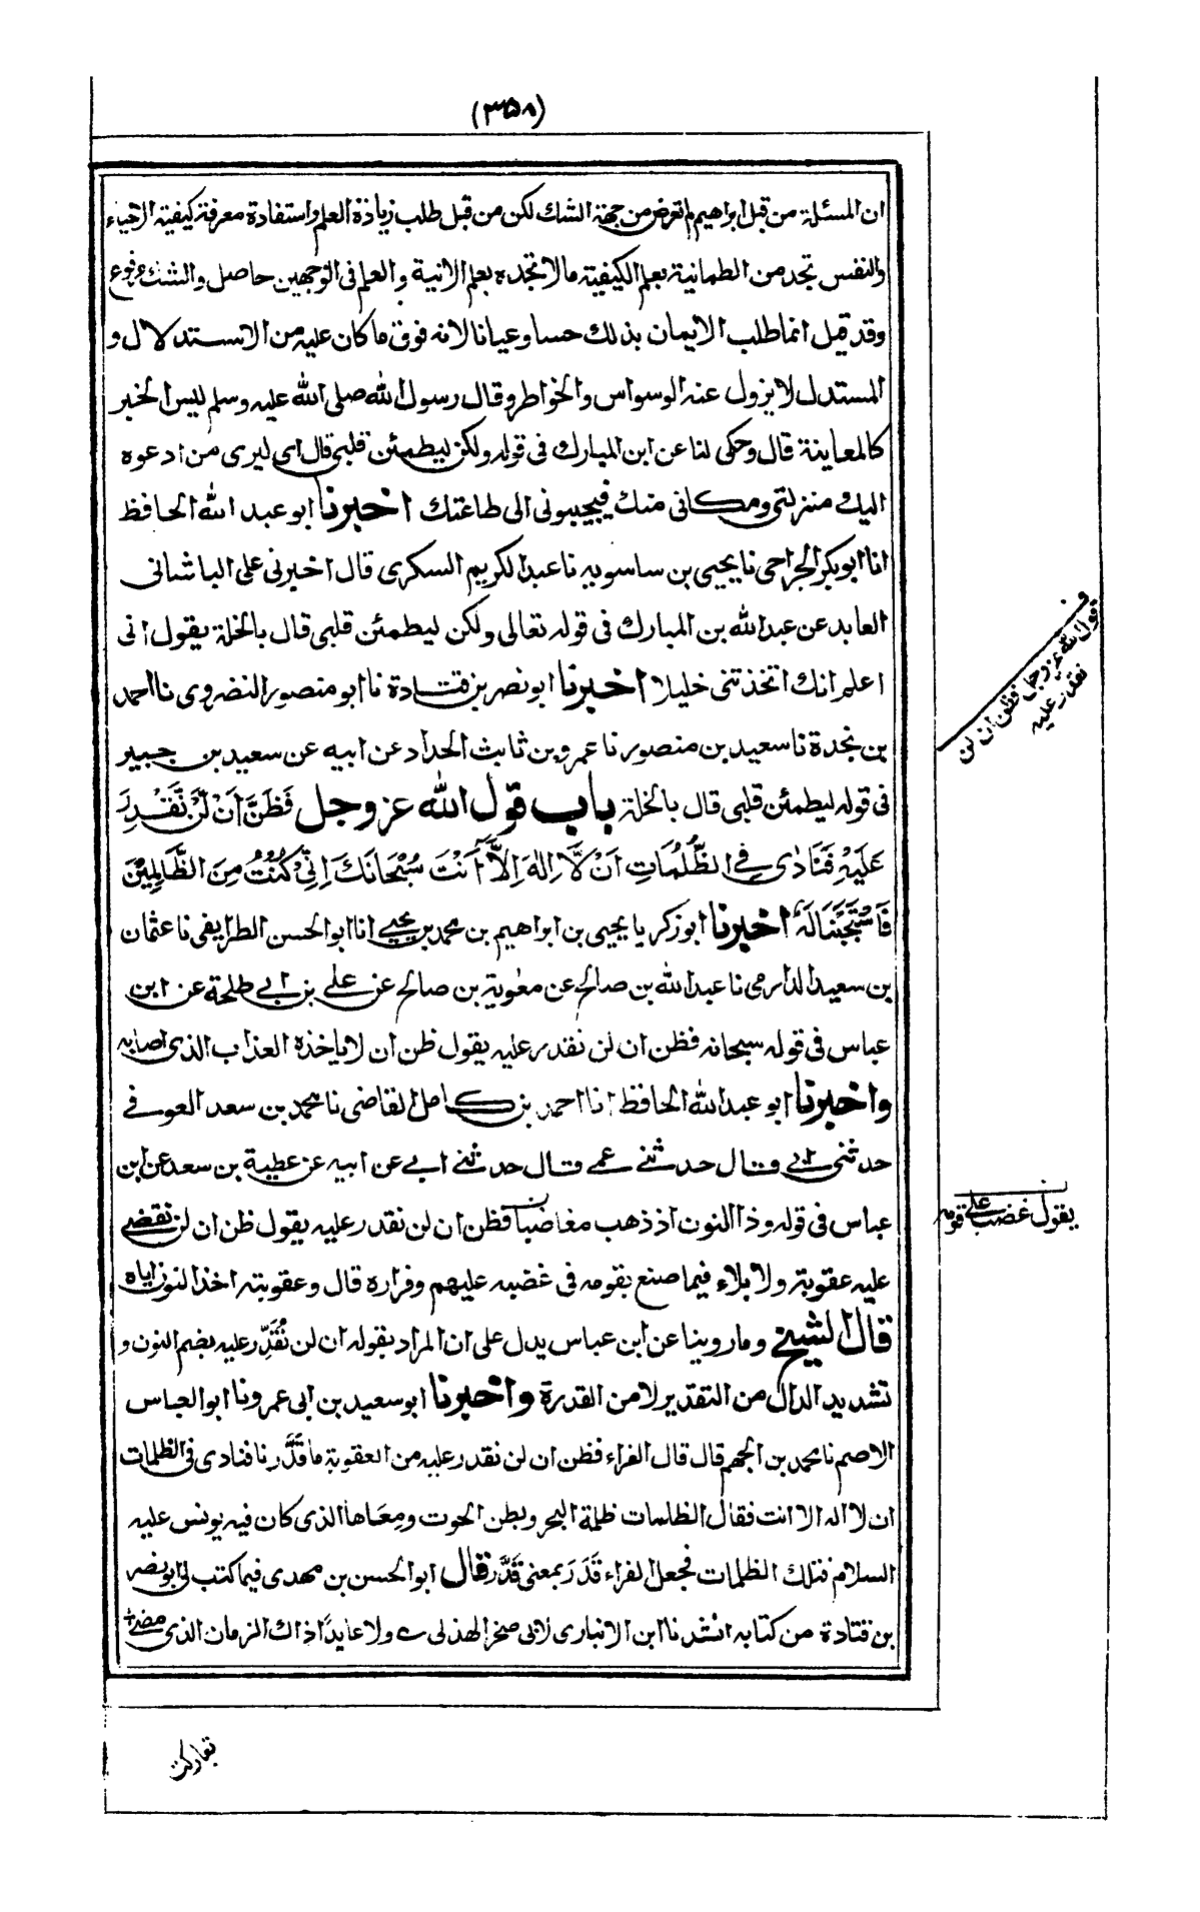 (۳۵۸)
ان المسئلة من قبل ابراهيم لم تعرض من جهة الشك لكن من قبل طلب زيادة العلم واستفادة معرفة كيفية الاحياء
والنفس تجد من الطمانية بعلم الكيفية ما لا تجده بعلم الانية والعلم فى الوجهين حاصل والشك مرفوع
وقد قيل انما طلب الايمان بذلك حسا وعيانا لانه فوق ما كان عليه من الاستدلال و
المستدل لا يزول عنه الوسواس والخواطر وقال رسول الله صلى الله عليه وسلم ليس الخبر
كالمعاينة قال وحكى لنا عن ابن المبارك فى قوله ولكن ليطمئن قلبى قال اى ليرى من ادعوه
اليك منزلتى ومكانى منك فيجيبونى الى طاعتك اخبرنا ابو عبد الله الحافظ
انا ابو بكر الجراحى نا يحيى بن ساسويه نا عبد الكريم السكرى قال اخبرنى على الباشانى
العابد عن عبد الله بن المبارك فى قوله تعالى ولكن ليطمئن قلبى قال بالخلة يقول انى
اعلم انك اتخذتنى خليلا اخبرنا ابو نصر بن قتادة نا ابو منصور النضروى نا احمد
بن نجدة نا سعيد بن منصور نا عمرو بن ثابت الحداد عن ابيه عن سعيد بن جبير
فى قوله ليطمئن قلبى قال بالخلة باب قول الله عز وجل فَظَنَّ اَنْ لَنْ نَّقْدِرَ
عَلَيْهِ فَنَادٰى فِى الظُّلُمَاتِ اَنْ لَّا اِلٰهَ اِلَّا اَنْتَ سُبْحَانَكَ اِنِّى كُنْتُ مِنَ الظَّالِمِيْنَ
فَاسْتَجَبْنَا لَهُ اخبرنا ابو زكريا يحيى بن ابراهيم بن محمد بن يحيى انا ابو الحسن الطرايفى نا عثمان
بن سعيد الدارمى نا عبد الله بن صالح عن معٰوية بن صالح عن على بن ابى طلحة عن ابن
عباس فى قوله سبحانه فظن ان لن نقدر عليه يقول ظن ان لا ياخذه العذاب الذى اصابه
واخبرنا ابو عبد الله الحافظ انا احمد بن كامل القاضى نا محمد بن سعد العوفى
حدثنى ابى قال حدثنى عمى قال حدثنى ابى عن ابيه عن عطية بن سعد عن ابن
عباس فى قوله وذا النون اذ ذهب مغاضبا فظن ان لن نقدر عليه يقول ظن ان لن نقضى
عليه عقوبة ولا بلاء فيما صنع بقومه فى غضبه عليهم وفراره قال وعقوبته اخذ النون اياه
قال الشيخ وما روينا عن ابن عباس يدل على ان المراد بقوله ان لن نُقَدِّر عليه بضم النون و
تشديد الدال من التقدير لا من القدرة واخبرنا ابو سعيد بن ابى عمرو نا ابو العباس
الاصم نا محمد بن الجهم قال قال الفراء فظن ان لن نقدر عليه من العقوبة ما قَدَّرنا فنادى فى الظلمات
ان لا اله الا انت فقال الظلمات ظلمة البحر وبطن الحوت ومِعَاها الذى كان فيه يونس عليه
السلام فتلك الظلمات فجعل الفراء قَدَرَ بمعنى قَدَّرَ قال ابو الحسن بن مهدى فيما كتب لى ابو نصر
بن قتادة من كتابه انشدنا ابن الانبارى لابى صخر الهذلى ے ولا عايداً ذاك الزمان الذى مضىٰ
قول الله عز وجل فظن ان لن
نقدر عليه
يقول غضب على قومه
تباركت